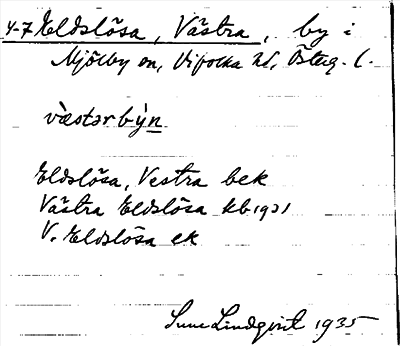 4-7 Eldslösa, Västra, by i
Mjölby sn, Vifolka hd, Östug. l.
væ̀stərby̆n
Eldslösa, Vestra bek
Västra Eldslösa kb 1931
V. Eldslösa ek
Sune Lindqvist 1935